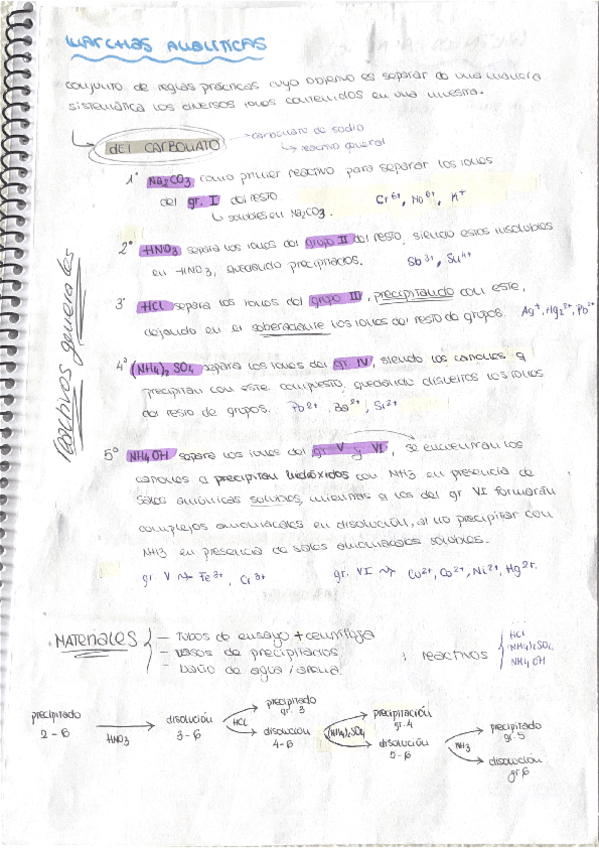 MARCHAS ANALITICAS
conjunto de reglas prácticas cuyo objetivo es separar de una manera
sistemática los diversos iones contenidos en una muestra.
del CARBONATO
carbonato de sodio
↳ reactivo general
Reactivos generales
1º Na2CO3 como primer reactivo para separar los iones
del gr. I del resto
↳ solubles en Na2CO3.
Cr6+, Mo6+, K+
2º HNO3 separa los iones del grupo II del resto, siendo estos insolubles
en HNO3, quedando precipitados.
Sb3+, Sn4+
3º HCl separa los iones del grupo III, precipitando con este,
dejando en el sobrenadante los iones del resto de grupos.
Ag+, Hg2 2+, Pb2+
4º (NH4)2 SO4 separa los iones del gr. IV, siendo los cationes q
precipitan con este compuesto, quedando disueltos los iones
del resto de grupos. Pb2+, Ba2+, Sr2+
5º NH4OH separa los iones del gr V y VI, se encuentran los
cationes q precipitan hidróxidos con NH3 en presencia de
sales amónicas solubles, mientras q los del gr VI formarán
complejos amoniacales en disolución, al no precipitar con
NH3 en presencia de sales amoniacales solubles.
gr. V → Fe3+, Cr3+
gr. VI → Cu2+, Co2+, Ni2+, Hg2+.
MATERIALES
– Tubos de ensayo + centrífuga
– Vasos de precipitados
– Baño de agua / arena.
; reactivos
HCl
(NH4)2SO4
NH4OH
precipitado
2-6
HNO3
disolución
3-6
HCl
precipitado
gr. 3
disolución
4-6
(NH4)2SO4
precipitación
gr. 4
disolución
5-6
NH3
precipitado
gr. 5
disolución
gr 6